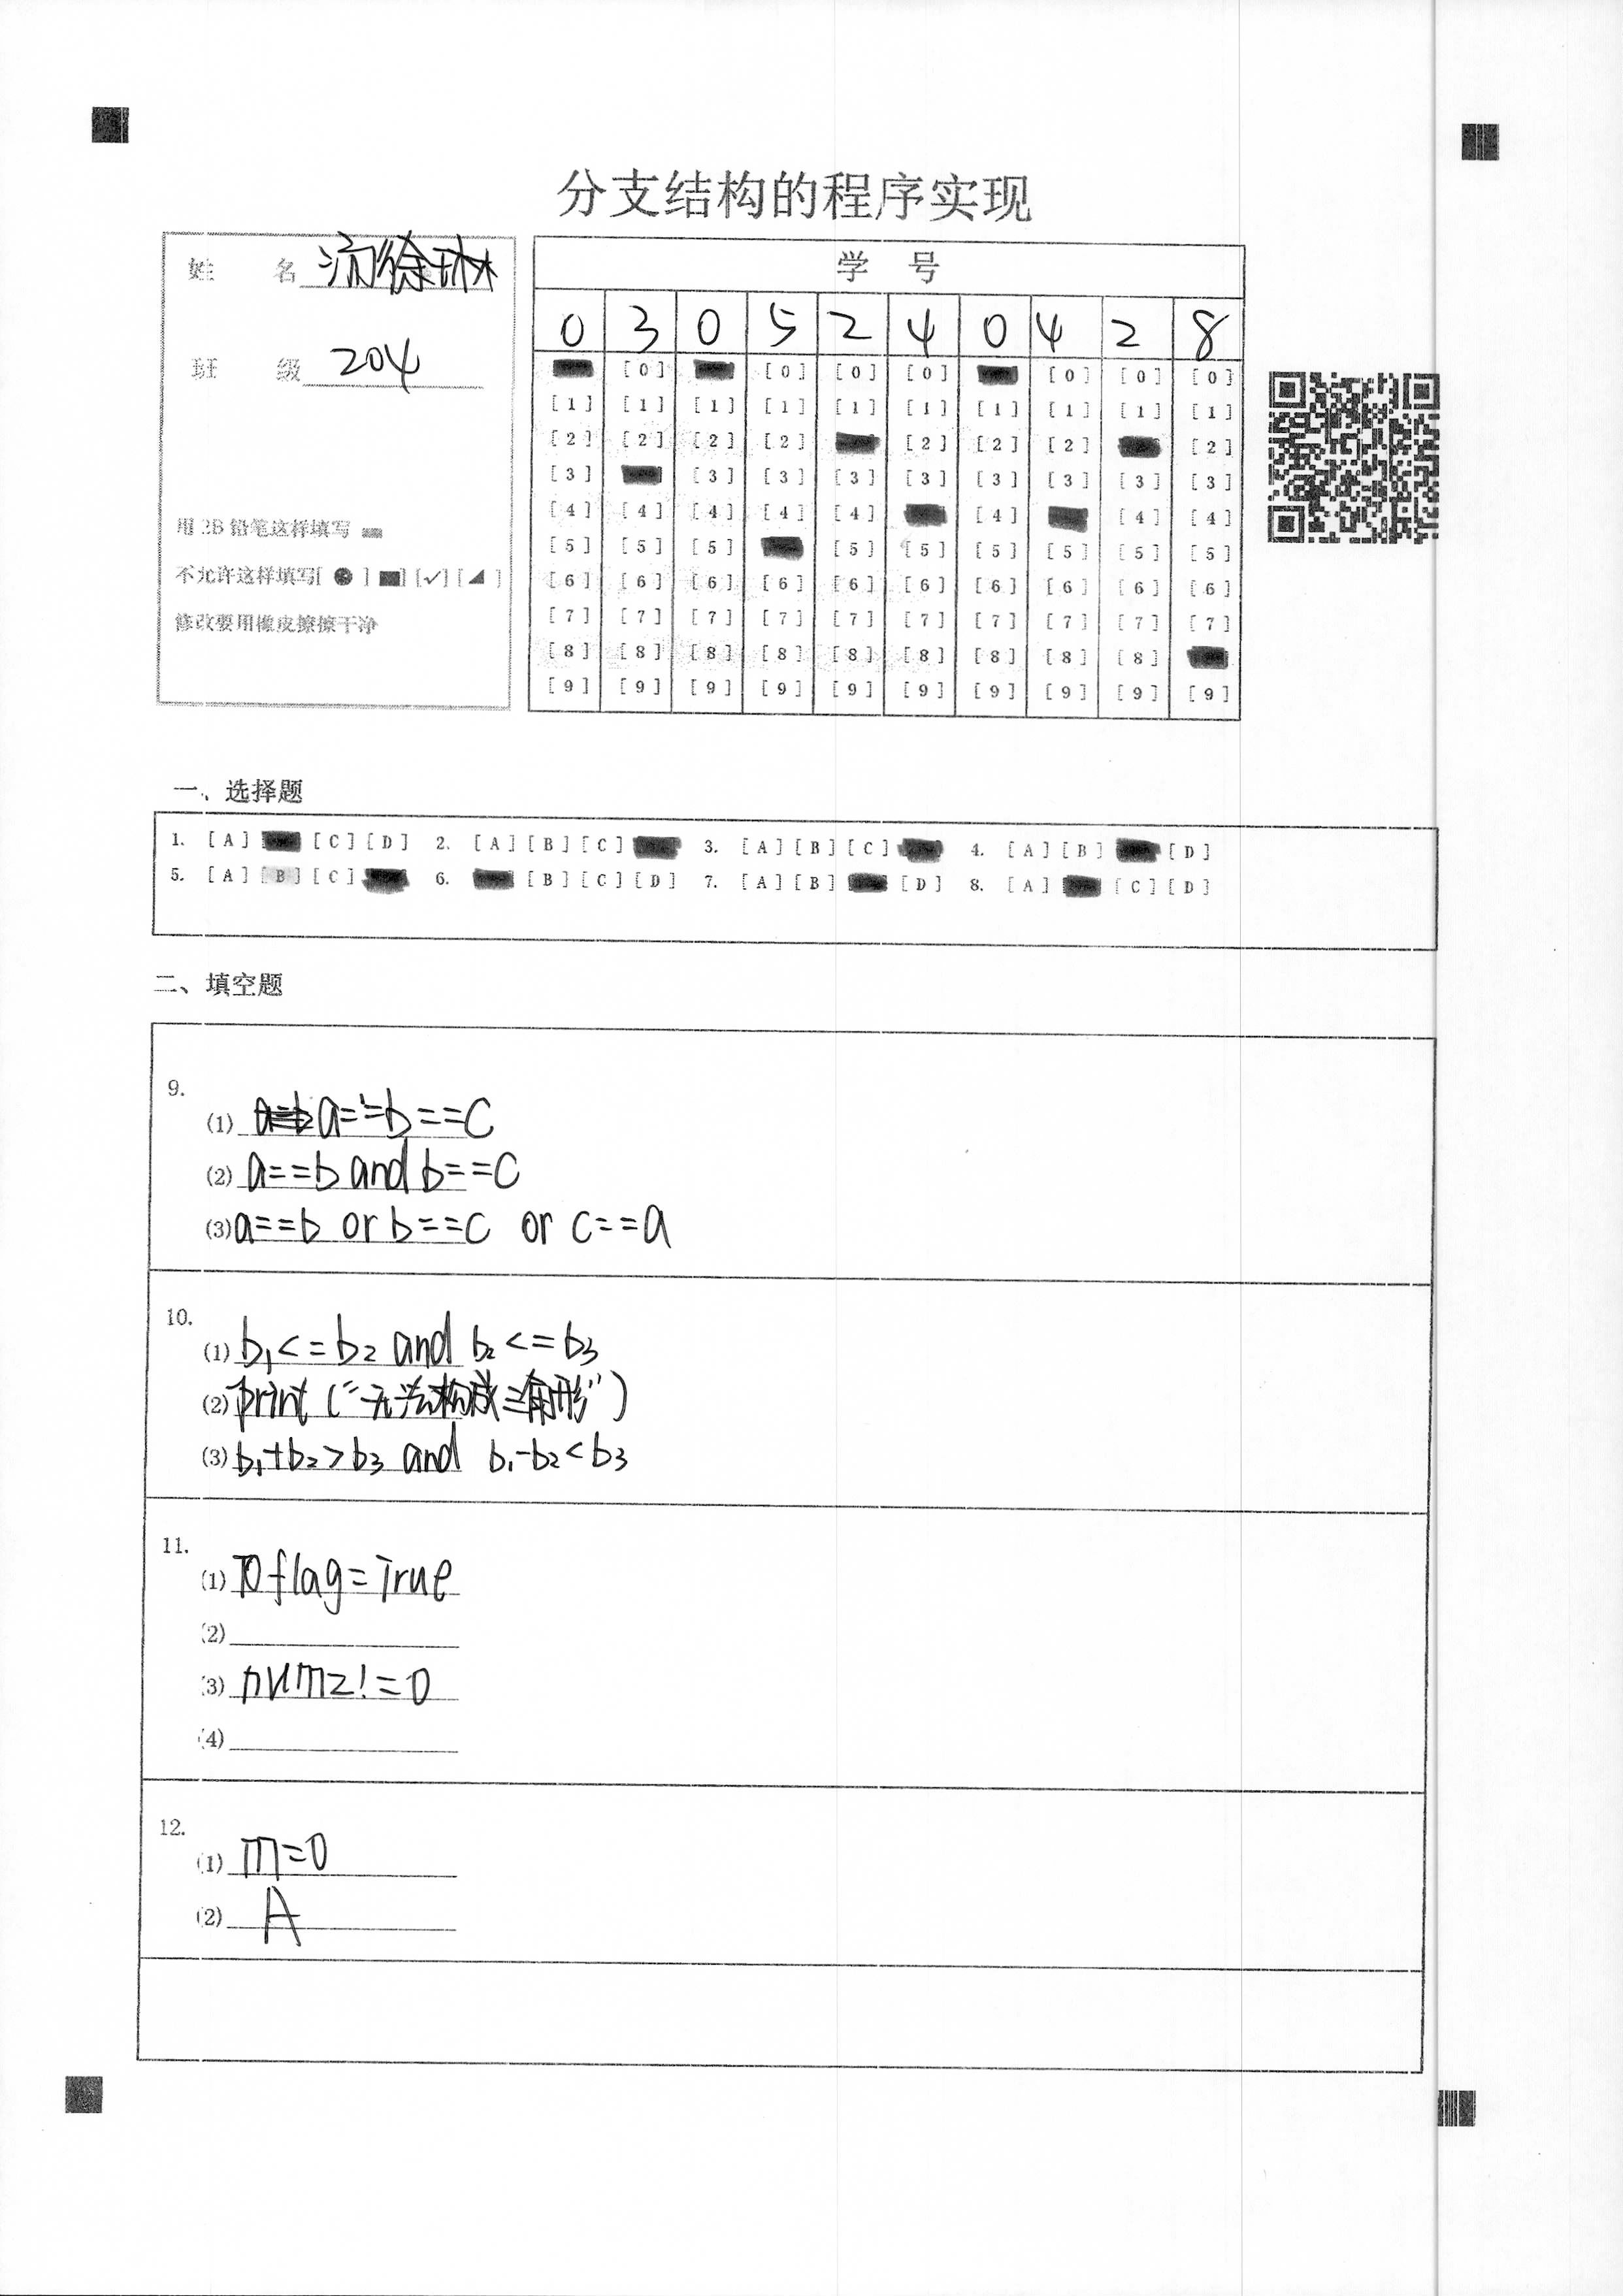 分支结构的程序实现
姓 名
班 级 204
用 2B 铅笔这样填写
不允许这样填写[ ] [✓] [ ]
修改要用橡皮擦擦干净
学 号
0 3 0 5 2 4 0 4 2 8
[0] [0] [0] [0] [0] [0] [0]
[1] [1] [1] [1] [1] [1] [1] [1] [1] [1]
[2] [2] [2] [2] [2] [2] [2] [2]
[3] [3] [3] [3] [3] [3] [3] [3] [3]
[4] [4] [4] [4] [4] [4] [4] [4]
[5] [5] [5] [5] [5] [5] [5] [5] [5]
[6] [6] [6] [6] [6] [6] [6] [6] [6] [6]
[7] [7] [7] [7] [7] [7] [7] [7] [7] [7]
[8] [8] [8] [8] [8] [8] [8] [8] [8]
[9] [9] [9] [9] [9] [9] [9] [9] [9] [9]
一、选择题
1. [A] [C] [D] 2. [A] [B] [C] 3. [A] [B] [C] 4. [A] [B] [D]
5. [A] [B] [C] 6. [B] [C] [D] 7. [A] [B] [D] 8. [A] [C] [D]
二、填空题
9.
(1) a==b==c
(2) a==b and b==c
(3) a==b or b==c or c==a
10.
(1) b1<=b2 and b2<=b3
(2) print("无法构成三角形")
(3) b1+b2>b3 and b1-b2<b3
11.
(1) flag=True
(2)
(3) num2!=0
(4)
12.
(1) m=0
(2) A